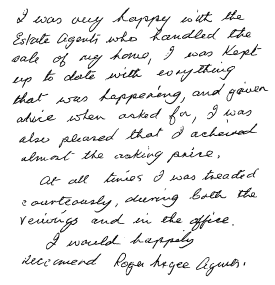 I was very happy with the
Estate Agents who handled the
sale of my home, I was kept
up to date with everything
that was happening, and given
advice when asked for, I was
also pleased that I achieved
almost the asking price.
At all times I was treated
courteously, during both the
veiwings and in the office.
I would happily
reccomend Roger Agents.